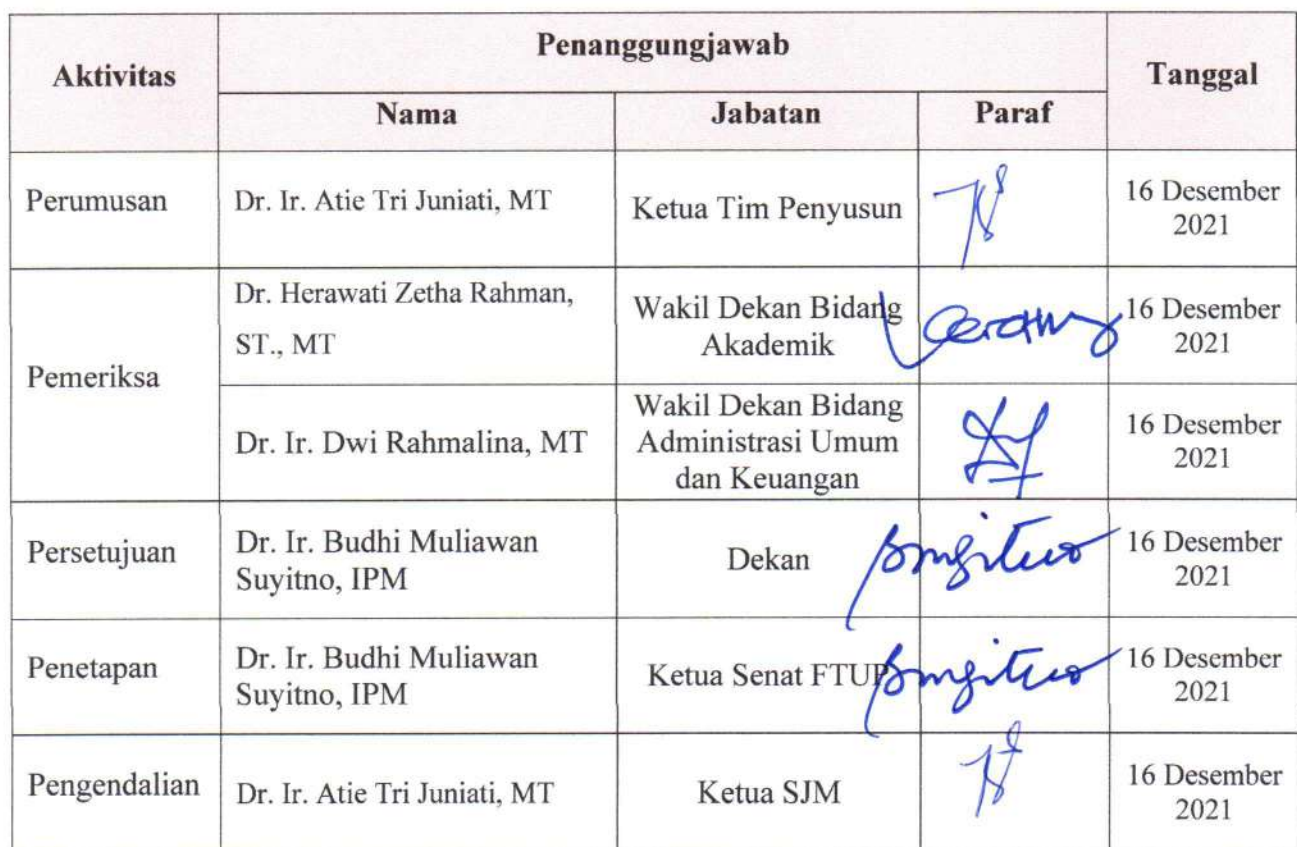 Aktivitas
Penanggungjawab
Tanggal
Nama
Jabatan
Paraf
Perumusan
Dr. Ir. Atie Tri Juniati, MT
Ketua Tim Penyusun
16 Desember
2021
Pemeriksa
Dr. Herawati Zetha Rahman,
ST., MT
Wakil Dekan Bidang
Akademik
16 Desember
2021
Dr. Ir. Dwi Rahmalina, MT
Wakil Dekan Bidang
Administrasi Umum
dan Keuangan
16 Desember
2021
Persetujuan
Dr. Ir. Budhi Muliawan
Suyitno, IPM
Dekan
16 Desember
2021
Penetapan
Dr. Ir. Budhi Muliawan
Suyitno, IPM
Ketua Senat FTUP
16 Desember
2021
Pengendalian
Dr. Ir. Atie Tri Juniati, MT
Ketua SJM
16 Desember
2021